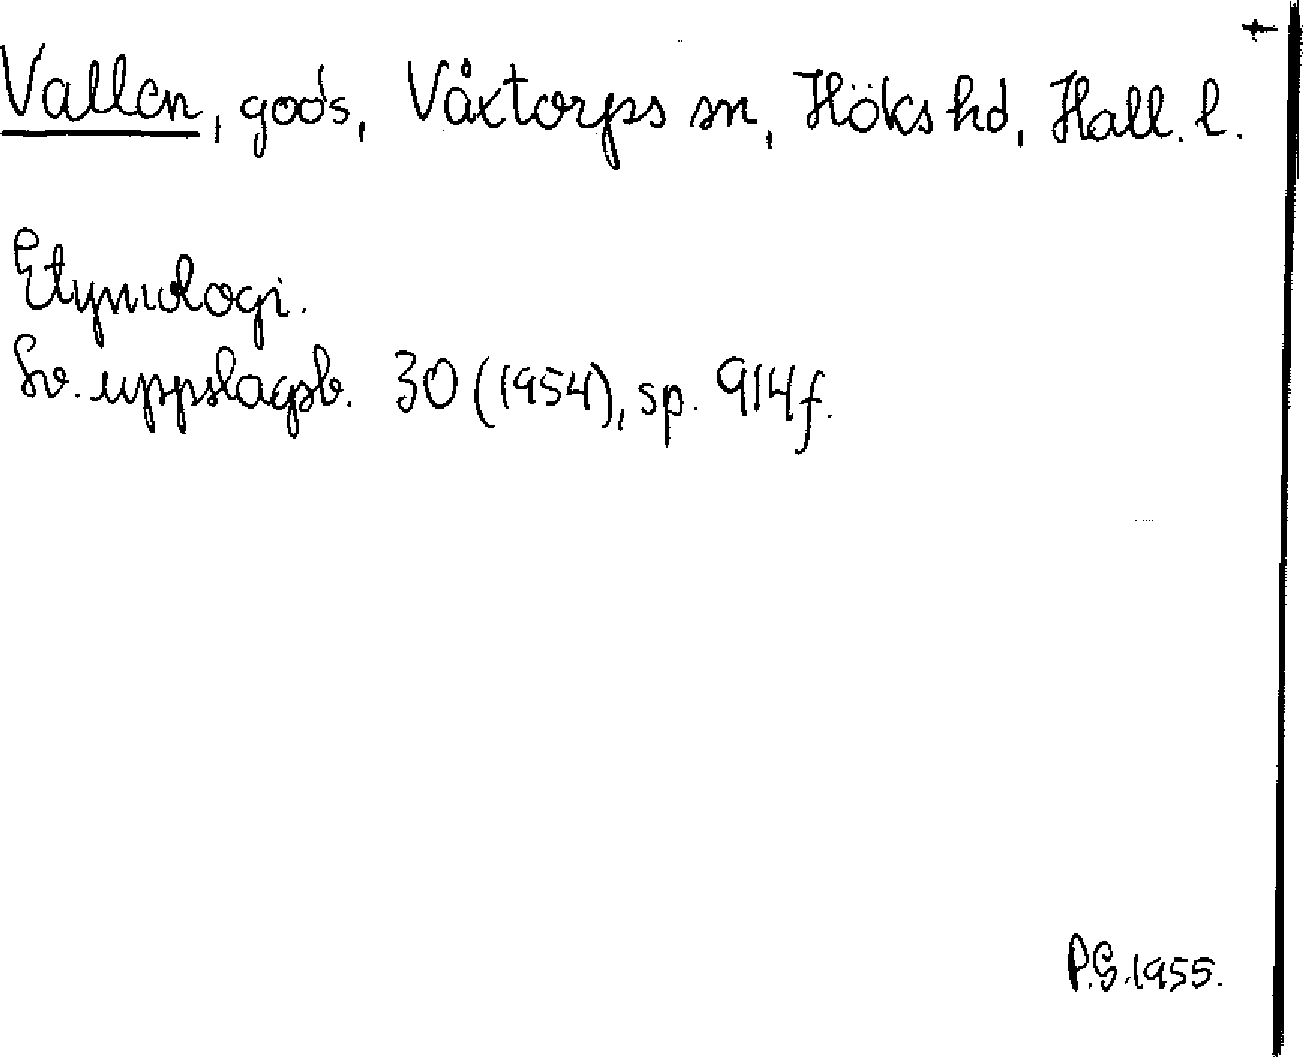 †
Vallen, gods, Våxtorps sn, Höks hd, Hall. l.
Etymologi.
Sv. uppslagsb. 30 (1954), sp. 914 f.
P.G. 1955.